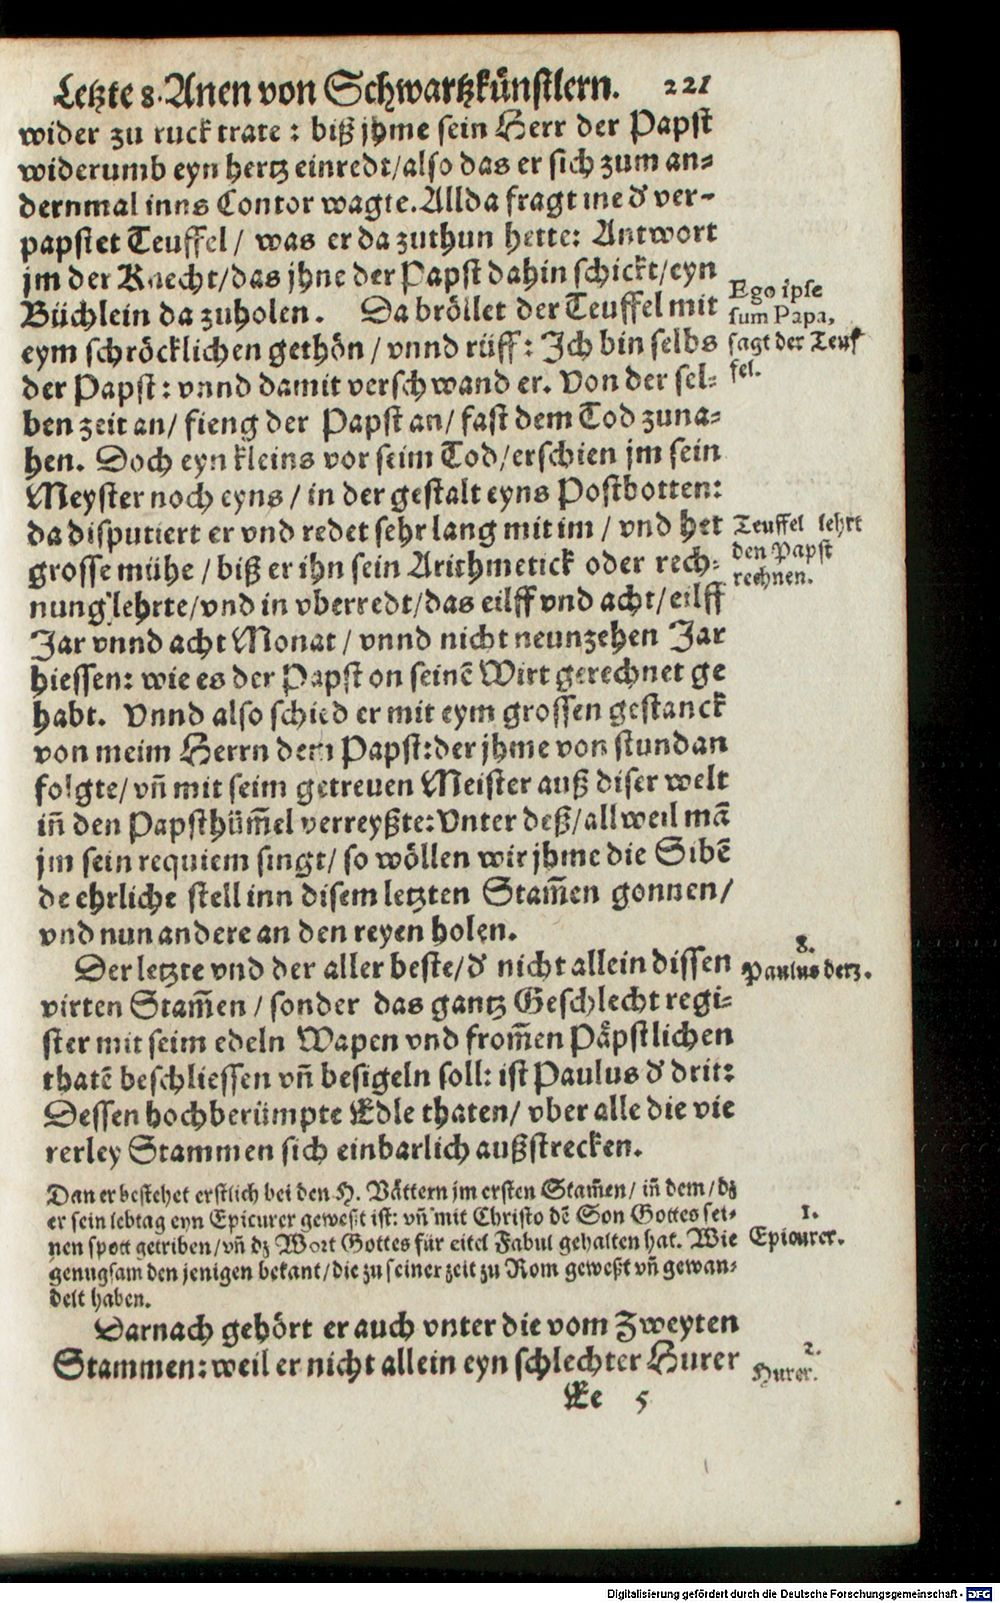 Letzte 8. Anen von Schwartzkünstlern. 221
wider zu ruck trate: biß jhme sein Herr der Papst
widerumb eyn hertz einredt/also das er sich zum an=
dernmal inns Contor wagte. Allda fragt ine d' ver-
papstet Teuffel/ was er da zuthun hette: Antwort
jm der Knecht/das jhne der Papst dahin schickt/eyn
Büchlein da zuholen. Da bröllet der Teuffel mit
eym schröcklichen gethön/ vnnd rüff: Ich bin selbs
der Papst: vnnd damit verschwand er. Von der sel=
ben zeit an/ fieng der Papst an/ fast dem Tod zuna=
hen. Doch eyn kleins vor seim Tod/erschien jm sein
Meyster noch eyns/ in der gestalt eyns Postbotten:
da disputiert er vnd redet sehr lang mit im/ vnd het
grosse mühe/ biß er ihn sein Arithmetick oder rech=
nung lehrte/vnd in vberredt/das eilff vnd acht/eilff
Jar vnnd acht Monat/ vnnd nicht neunzehen Jar
hiessen: wie es der Papst on seinē Wirt gerechnet ge
habt. Vnnd also schied er mit eym grossen gestanck
von meim Herrn dem Papst: der jhme von stund an
folgte/vn̄ mit seim getreuen Meister auß diser welt
in̄ den Papsthüm̄el verreyßte: Vnter deß/allweil mā
jm sein requiem singt/ so wöllen wir jhme die Sibē
de ehrliche stell inn disem letzten Stam̄en gonnen/
vnd nun andere an den reyen holen.
Der letzte vnd der aller beste/d' nicht allein dissen
virten Stam̄en/ sonder das gantz Geschlecht regi=
ster mit seim edeln Wapen vnd from̄en Päpstlichen
thatē beschliessen vn̄ besigeln soll: ist Paulus d' drit:
Dessen hochberümpte Edle thaten/ vber alle die vie
rerley Stammen sich einbarlich außstrecken.
Dan er bestehet erstlich bei den H. Vättern jm ersten Stam̄en/ in̄ dem/ dz
er sein lebtag eyn Epicurer geweßt ist: vn̄ mit Christo dē Son Gottes sei=
nen spott getriben/vn̄ dz Wort Gottes für eitel Fabul gehalten hat. Wie
genugsam den jenigen bekant/die zu seiner zeit zu Rom geweßt vn̄ gewan=
delt haben.
Darnach gehört er auch vnter die vom Zweyten
Stammen: weil er nicht allein eyn schlechter Hurer
Ee 5
Ego ipse
sum Papa,
sagt der Teuf
fel.
Teuffel lehrt
den Papst
rechnen.
8.
Paulus der 3.
1.
Epicurer.
2.
Hurer.
Digitalisierung gefördert durch die Deutsche Forschungsgemeinschaft - DFG